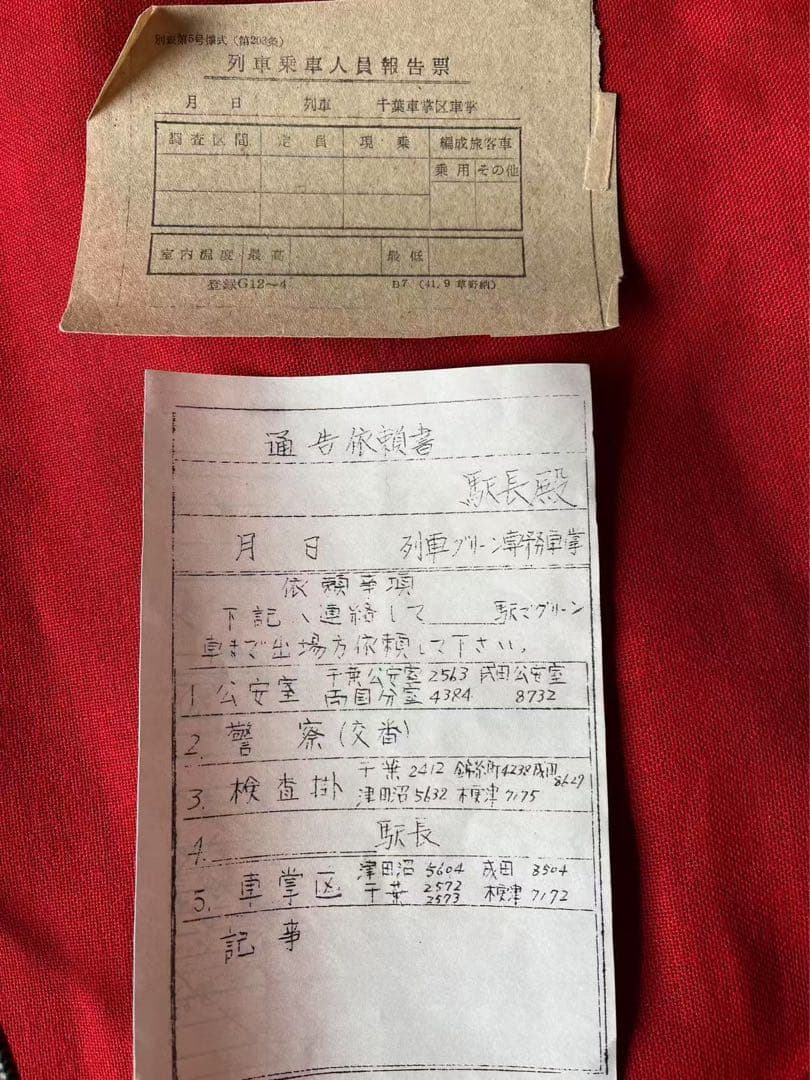 別表第5号様式（第203条）
列車乗車人員報告票
月 日 列車 千葉車掌区車掌
調査区間 定員 現乗 編成旅客車
乗用 その他
室内温度 最高 最低
登録G12～4 B7 (41.9 草野納)
通告依頼書
駅長殿
月 日 列車グリーン専務車掌
依頼事項
下記へ連絡して 駅でグリーン
車まで出場方依頼して下さい。
1 公安室 千葉公安室 2563 成田公安室
両国分室 4384 8732
2. 警察(交番)
3. 検査掛 千葉 2412 錦糸町4238 成田
8627
津田沼 5632 木更津 7175
4. 駅長
5. 車掌区 津田沼 5604 成田 8504
千葉 2572 2573 木更津 7172
記事